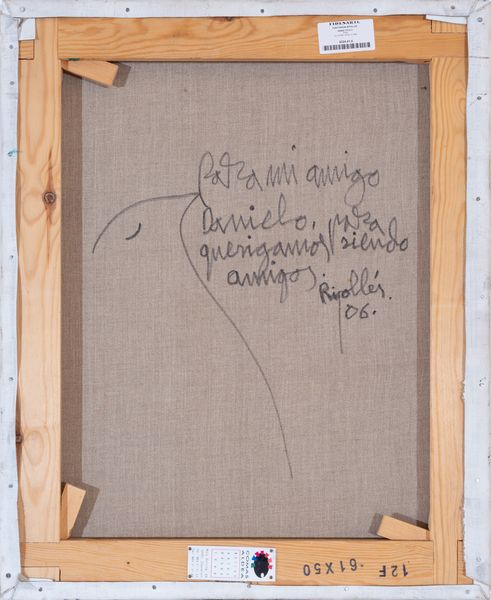 Para mi amigo
Danielo, para
querigamos siendo
amigos.
Ripollés.
06.
COMAS
ALDEA
12F ·61X50